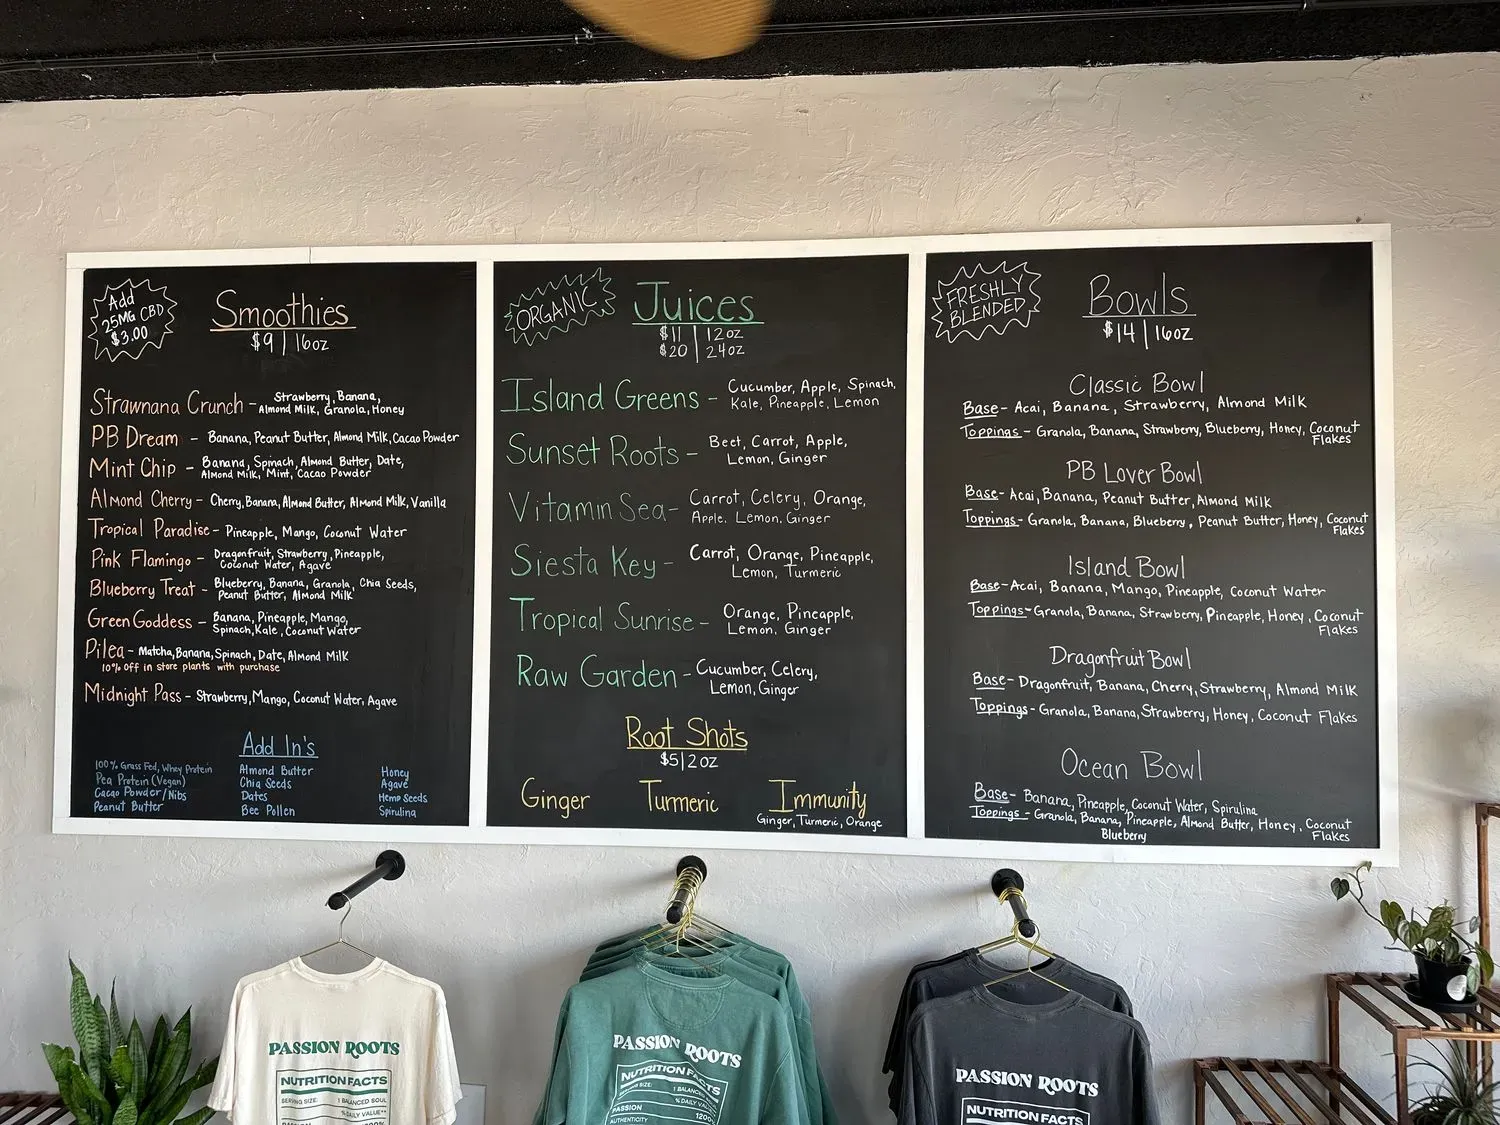 Add
25MG CBD
$3.00
Smoothies
$9 | 16oz
Strawnana Crunch - Strawberry, Banana,
Almond Milk, Granola, Honey
PB Dream - Banana, Peanut Butter, Almond Milk, Cacao Powder
Mint Chip - Banana, Spinach, Almond Butter, Date,
Almond Milk, Mint, Cacao Powder
Almond Cherry - Cherry, Banana, Almond Butter, Almond Milk, Vanilla
Tropical Paradise - Pineapple, Mango, Coconut Water
Pink Flamingo - Dragonfruit, Strawberry, Pineapple,
Coconut Water, Agave
Blueberry Treat - Blueberry, Banana, Granola, Chia Seeds,
Peanut Butter, Almond Milk
Green Goddess - Banana, Pineapple, Mango,
Spinach, Kale, Coconut Water
Pilea - Matcha, Banana, Spinach, Date, Almond Milk
10% off in store plants with purchase
Midnight Pass - Strawberry, Mango, Coconut Water, Agave
Add In's
100% Grass Fed, Whey Protein
Pea Protein (Vegan)
Cacao Powder/Nibs
Peanut Butter
Almond Butter
Chia Seeds
Dates
Bee Pollen
Honey
Agave
Hemp Seeds
Spirulina
ORGANIC
Juices
$11 | 12oz
$20 | 24oz
Island Greens - Cucumber, Apple, Spinach,
Kale, Pineapple, Lemon
Sunset Roots - Beet, Carrot, Apple,
Lemon, Ginger
Vitamin Sea - Carrot, Celery, Orange,
Apple, Lemon, Ginger
Siesta Key - Carrot, Orange, Pineapple,
Lemon, Turmeric
Tropical Sunrise - Orange, Pineapple,
Lemon, Ginger
Raw Garden - Cucumber, Celery,
Lemon, Ginger
Root Shots
$5 | 2oz
Ginger Turmeric Immunity
Ginger, Turmeric, Orange
FRESHLY
BLENDED
Bowls
$14 | 16oz
Classic Bowl
Base - Acai, Banana, Strawberry, Almond Milk
Toppings - Granola, Banana, Strawberry, Blueberry, Honey, Coconut
Flakes
PB Lover Bowl
Base - Acai, Banana, Peanut Butter, Almond Milk
Toppings - Granola, Banana, Blueberry, Peanut Butter, Honey, Coconut
Flakes
Island Bowl
Base - Acai, Banana, Mango, Pineapple, Coconut Water
Toppings - Granola, Banana, Strawberry, Pineapple, Honey, Coconut
Flakes
Dragonfruit Bowl
Base - Dragonfruit, Banana, Cherry, Strawberry, Almond Milk
Toppings - Granola, Banana, Strawberry, Honey, Coconut Flakes
Ocean Bowl
Base - Banana, Pineapple, Coconut Water, Spirulina
Toppings - Granola, Banana, Pineapple, Almond Butter, Honey, Coconut
Flakes
Blueberry
PASSION ROOTS
NUTRITION FACTS
SERVING SIZE: 1 BALANCED SOUL
% DAILY VALUE**
PASSION ROOTS
NUTRITION FACTS
SERVING SIZE: 1 BALANCED
% DAILY
PASSION 1200%
AUTHENTICITY
PASSION ROOTS
NUTRITION FACTS